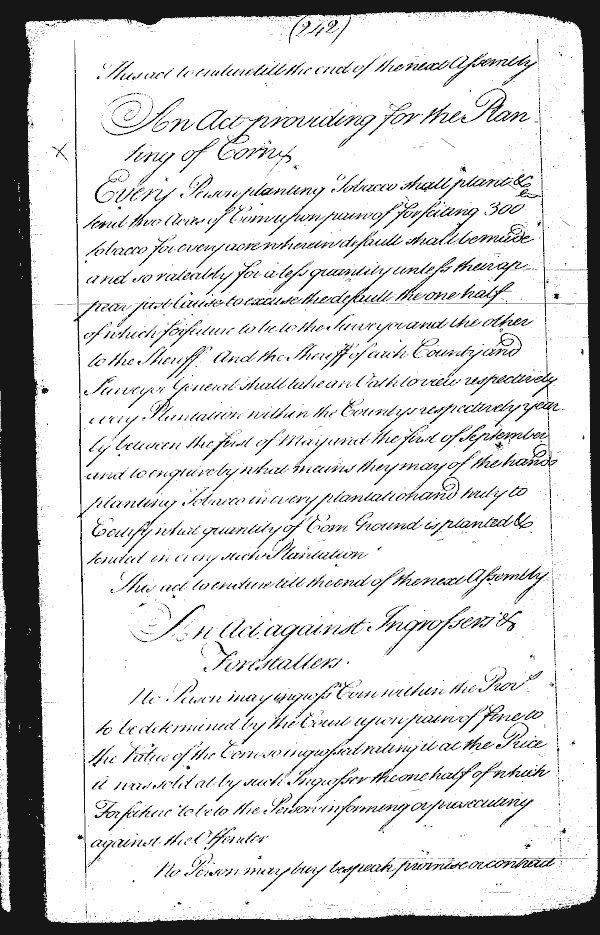 (242)
This act to endure till the end of the next Assembly
An Act providing for the Plan
ting of Corn
Every Person planting Tobacco shall plant &
tend two Acres of Corn upon pain of forfeiting 300
tobacco for every acre wherein default shall be made
and so rateably for a less quantity unless their ap
pear just Cause to excuse the default the one half
of which forfeiture to be to the Surveyor and the other
to the Sheriff. And the Sheriff of each County and
Surveyor General shall take an Oath to view respectively
every Plantation within the Countys respectively year
ly between the first of May and the first of September
and to enquire by what means they may of the hands
planting Tobacco in every plantation and truly to
Certify what quantity of Corn Ground is planted &
tended in every such Plantation
This act to endure till the end of the next Assembly
An Act against Ingrossers &
Forestallers.
No Person may ingross Corn within the Prov
to be determined by the Court upon pain of fine to
the Value of the Corn so ingrossed rating it at the Price
it was sold at by such Ingrosser the one half of which
Forfeiture to be to the Person informing or prosecuting
against the Offender
No Person may buy bespeak promise or contract